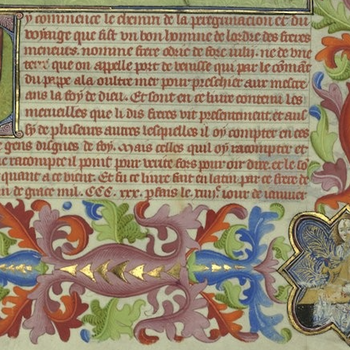 y commence le chemin de la peregrinacion et du
voyage que fist vn bon homme de lordre des freres
meneurs. nomme frere odric de fore iulij. ne de vne
terre que on appelle port de venisse qui par le coman
du pape ala oultre mer pour preschier aux mescre
ans la foy de dieu. Et sont en ce liure contenu les
merueilles que li dis freres vit presentement, et aus
de pluseurs autres lesquelles il oy compter en ces
gens dignes de foy. Mais celles quil oy racompter et
ne racompte il point pour veoir fors pour oir dire, et le
quant a ce vient. Et fu ce liure fait en latin par ce frere de
de grace mil. CCC. xxx. parfais le iour de ianuier